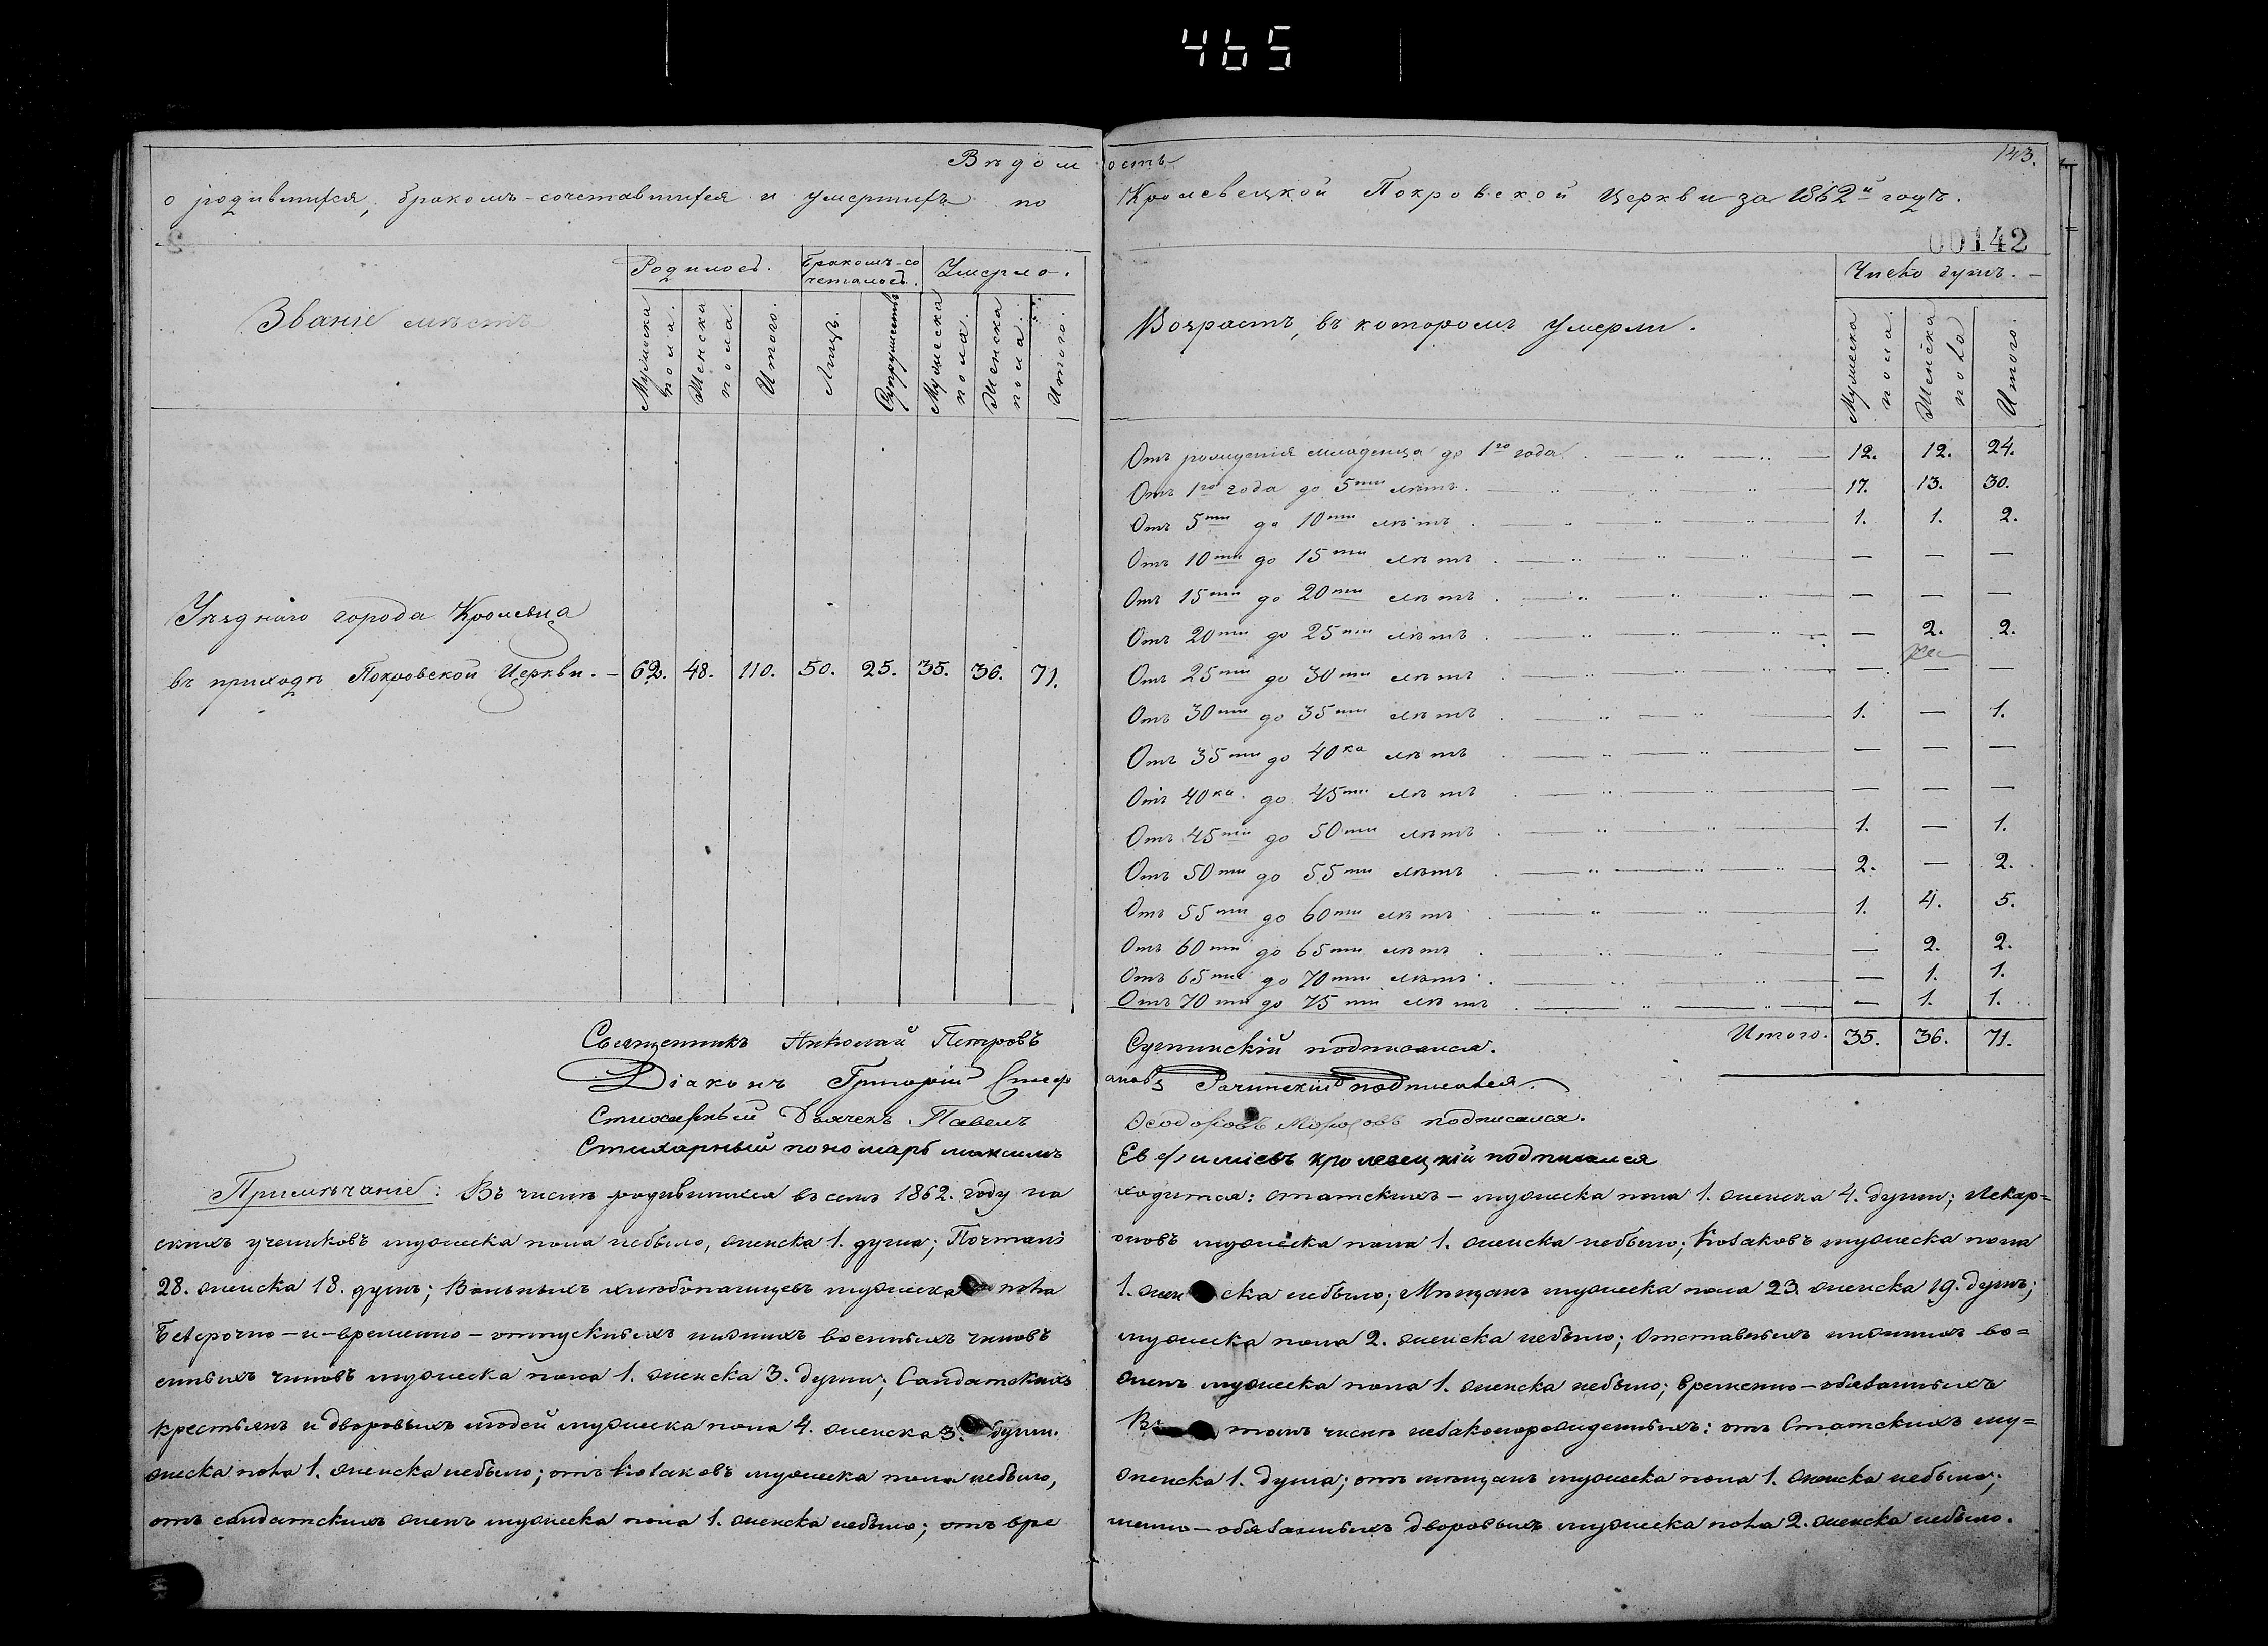 465
Вѣдомость
143.
о родившихся, бракомъ-сочетавшихся и умершихъ по Кролевецкой Покровской Церкви за 1862й годъ.
00142
Званіе мѣстъ
Родилось.
Бракомъ-со
четалось.
Умерло.
Мужеска
пола.
Женска
пола.
Итого.
Лицъ.
Супружествъ
Мужеска
пола.
Женска
пола.
Итого.
Уѣзднаго города Кролевца
въ приходѣ Покровской Церкви. — 62. 48. 110. 50. 25. 35. 36. 71.
Возрастъ, въ которомъ умерли.
Число душъ. —
Мужеска
пола.
Женска
пола
Итого.
Отъ рожденія младенца до 1го года. 12. 12. 24.
Отъ 1го года до 5ти лѣтъ. 17. 13. 30.
Отъ 5ти до 10ти лѣтъ. 1. 1. 2.
Отъ 10ти до 15ти лѣтъ. — — —
Отъ 15ти до 20ти лѣтъ. — — —
Отъ 20ти до 25ти лѣтъ. — 2. 2.
Отъ 25ти до 30ти лѣтъ. — — —
Отъ 30ти до 35ти лѣтъ. 1. — 1.
Отъ 35ти до 40ка лѣтъ. — — —
Отъ 40ка до 45ти лѣтъ. — — —
Отъ 45ти до 50ти лѣтъ. 1. — 1.
Отъ 50ти до 55ти лѣтъ. 2. — 2.
Отъ 55ти до 60ти лѣтъ. 1. 4. 5.
Отъ 60ти до 65ти лѣтъ. — 2. 2.
Отъ 65ти до 70ти лѣтъ. — 1. 1.
Отъ 70ти до 75ти лѣтъ. — 1. 1.
Итого. 35. 36. 71.
Священникъ Николай Петровъ подписался.
Діаконъ Григорій Стефановъ Рачинскій подписался.
Стихарный Дьячекъ Павелъ Ѳеодоровъ подписался.
Стихарный пономарь Максимъ Евфиміевъ Кролевецкій подписался
Примѣчаніе: Въ числѣ родившихся въ семъ 1862. году находится: статскихъ — мужеска пола 1. женска 4. души; Лекар=
скихъ учениковъ мужеска пола небыло, женска 1. душа; Почталіоновъ мужеска пола 1. женска небыло; Козаковъ мужеска пола
28. женска 18. душъ; Вольныхъ хлѣбопашцевъ мужеска пола 1. женска небыло; Мѣщанъ мужеска пола 23. женска 19. душъ;
Безсрочно-и-временно-отпускныхъ нижнихъ военныхъ чиновъ мужеска пола 2. женска небыло; Отставныхъ нижнихъ во=
енныхъ чиновъ мужеска пола 1. женска 3. души; Салдатскихъ женъ мужеска пола 1. женска небыло; Временно-обязанныхъ
крестьянъ и дворовыхъ людей мужеска пола 4. женска 3. души. Въ томъ числѣ незаконорожденныхъ: отъ Статскихъ му=
жеска пола 1. женска небыло; отъ Козаковъ мужеска пола небыло, женска 1. душа; отъ мѣщанъ мужеска пола 1. женска небыло;
отъ салдатскихъ женъ мужеска пола 1. женска небыло; отъ временно-обязанныхъ дворовыхъ мужеска пола 2. женска небыло.